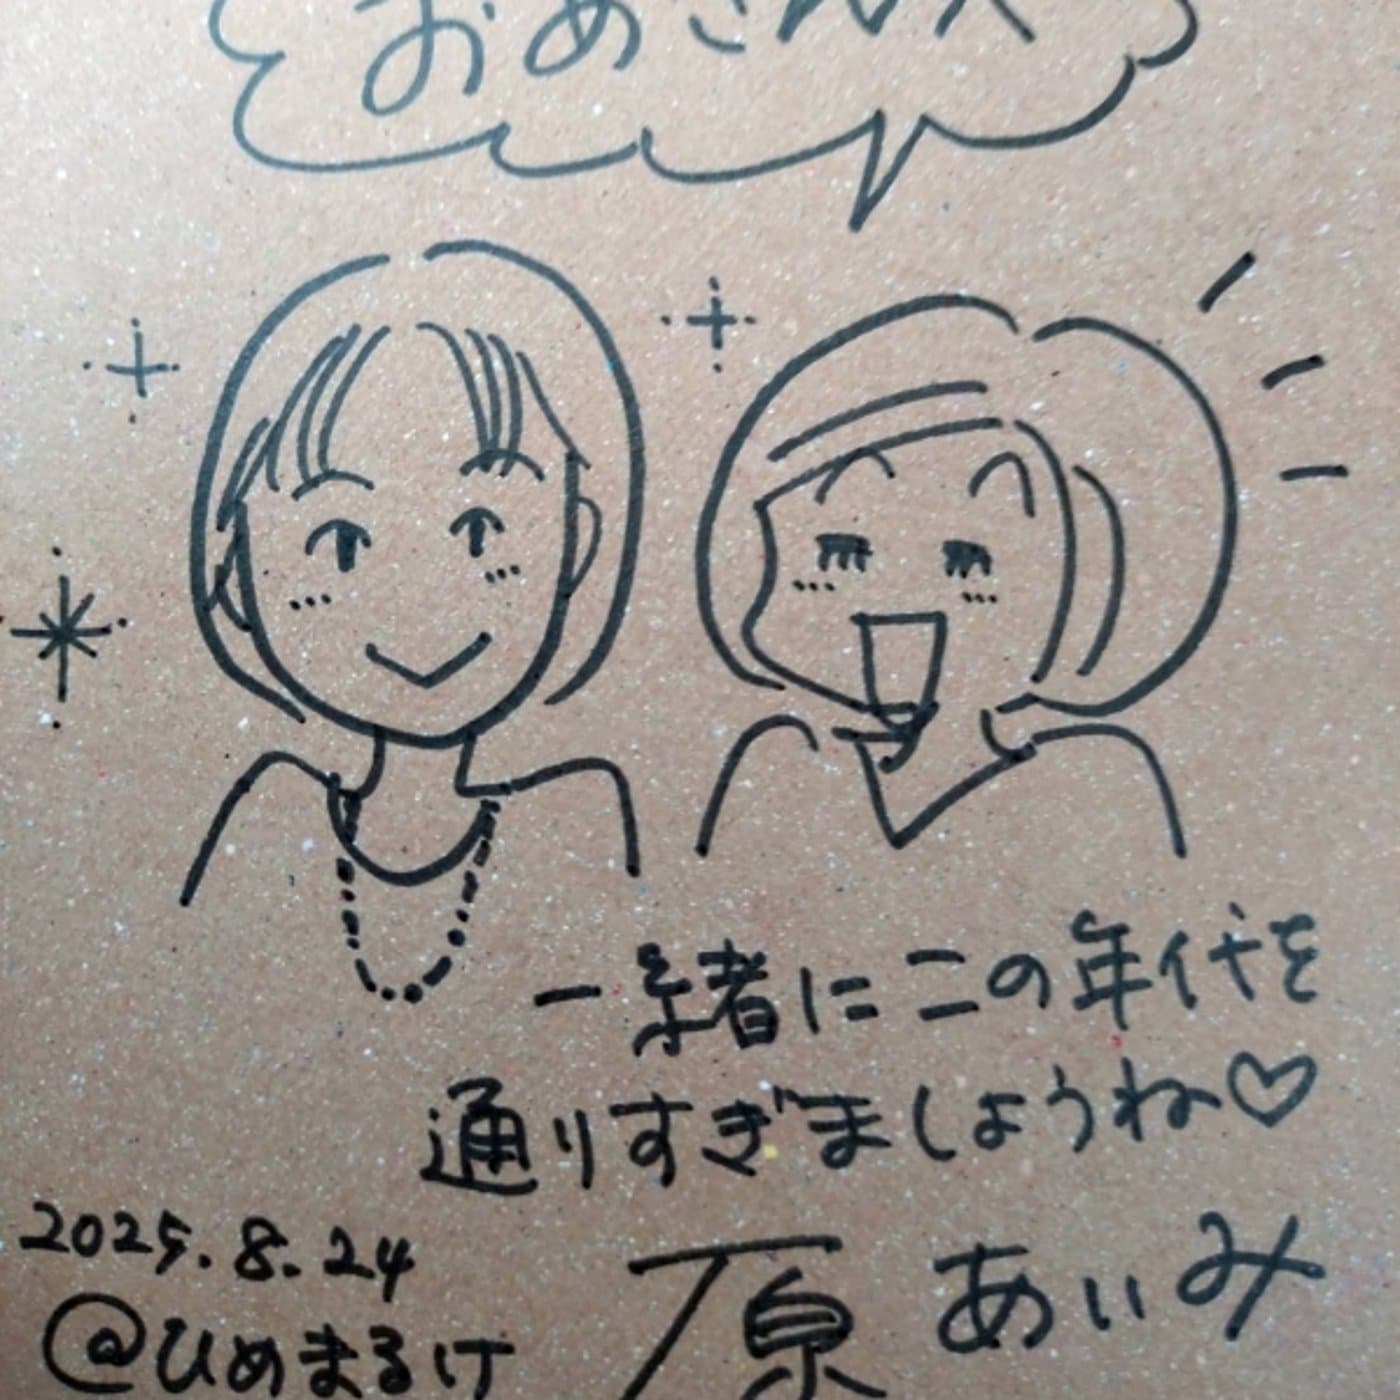 一緒にこの年代を
通りすぎましょうね♡
2025.8.24
@ひめまるけ
原 あいみ